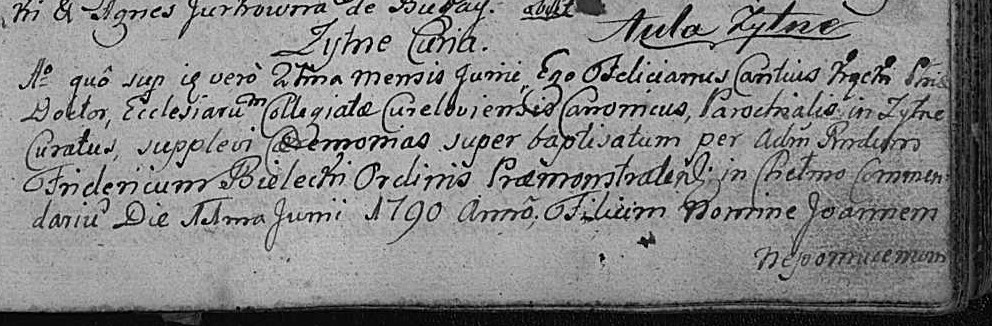 ki & Agnes Jurkowna de Bugay.
Zytne Curia. Aula Zytne
Aº quô sup ig verò 27ma mensis Junii, Ego Felicianus Cantius
Doctor, Ecclesiarum Collegiatæ Cureloviensis Canonicus, Parochialis in Zytne
Curatus, supplevi Cæremonias super baptisatum per Adm Rndum
Fridericum Bielecki Ordinis Præmonstraten: in Chełmo Commen-
dariũ Die 11ma Junii 1790 Annô. Filium Nomine Joannem
Nepomucenum